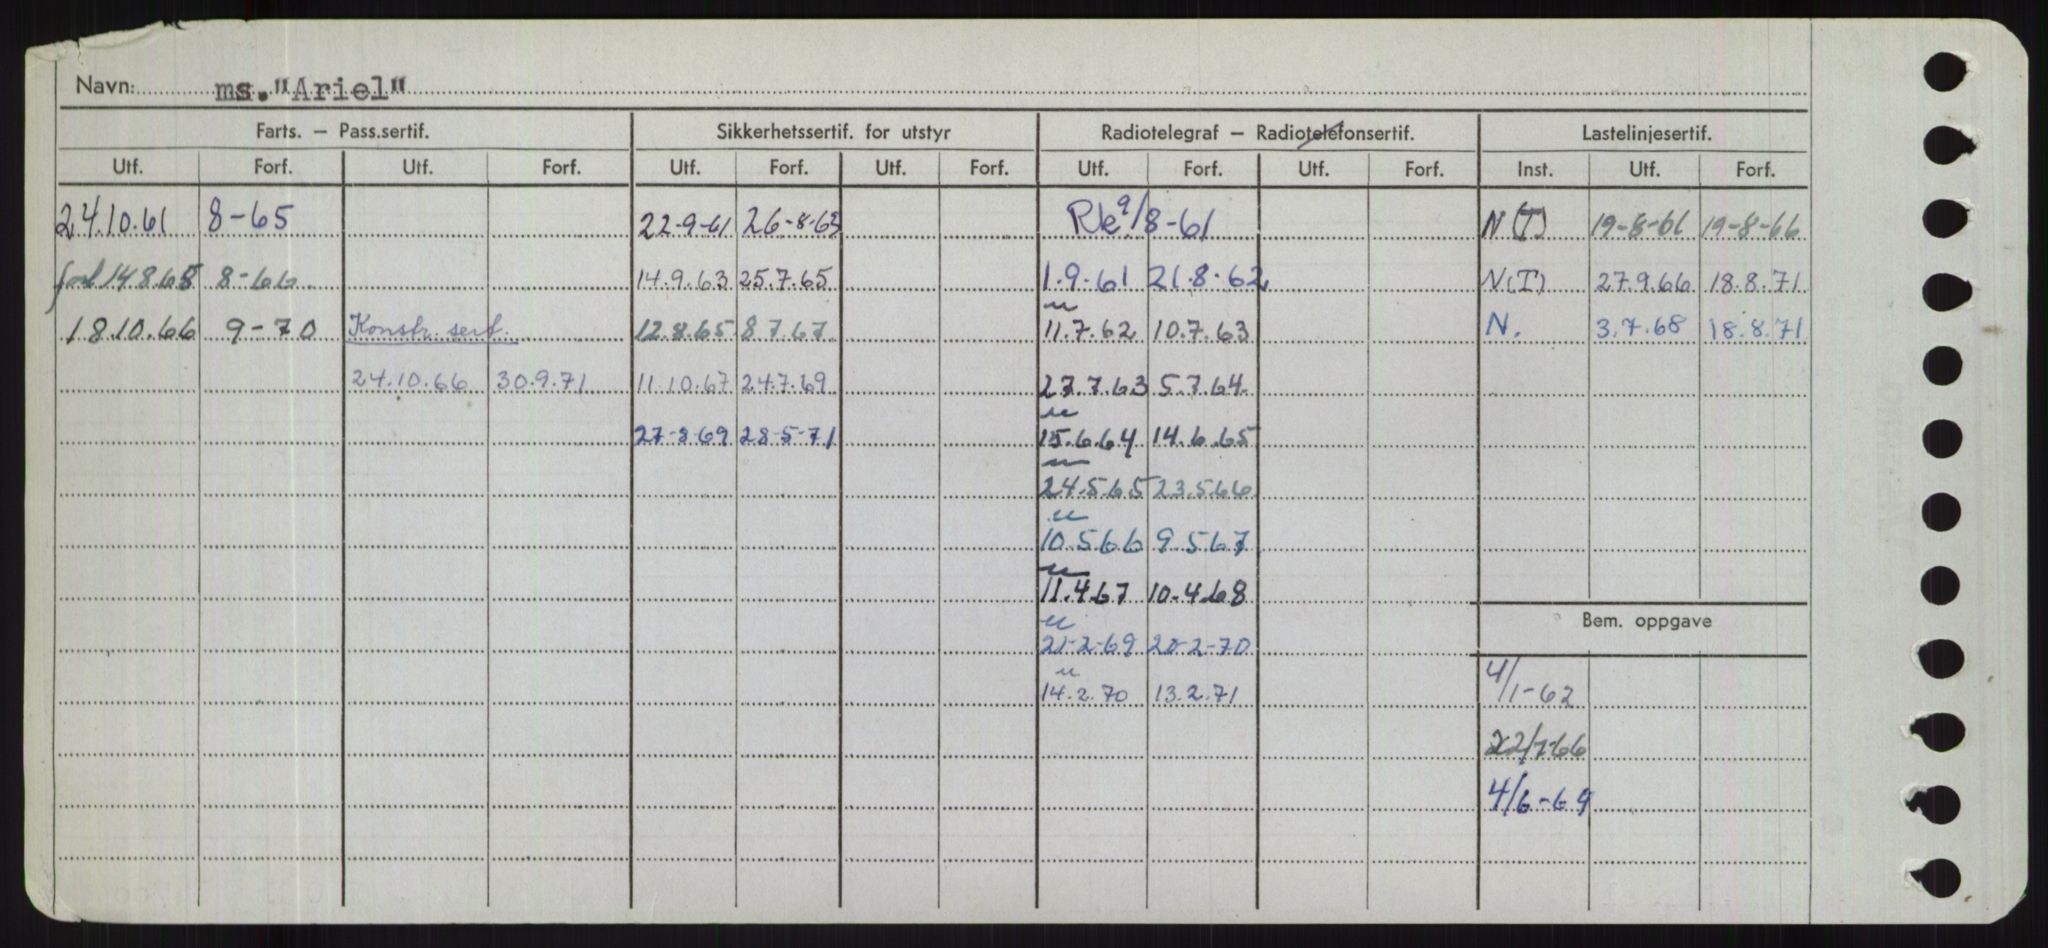 Navn: ms."Ariel"
Farts. – Pass.sertif. Sikkerhetssertif. for utstyr Radiotelegraf – Radiotelefonsertif. Lastelinjesertif.
Utf. Forf. Utf. Forf. Utf. Forf. Utf. Forf. Utf. Forf. Utf. Forf. Inst. Utf. Forf.
24.10.61 8-65 22-9-61 26-8-63 9/8-61 N(T) 19-8-61 19-8-66
14.8.65 8-66 14.9.63 25.7.65 1.9.61 21.8.62 N(T) 27.9.66 18.8.71
18.10.66 9-70 Konstr. sert. 12.8.65 8.7.67 11.7.62 10.7.63 N. 3.7.68 18.8.71
24.10.66 30.9.71 11.10.67 24.7.69 27.7.63 5.7.64
27-8-69 28-5-71 15.6.64 14.6.65
24.5.65 23.5.66
10.5.66 9.5.67
11.4.67 10.4.68
Bem. oppgave
21-2-69 20-2-70
4/1-62
14.2.70 13.2.71
22/7-66
4/6-69